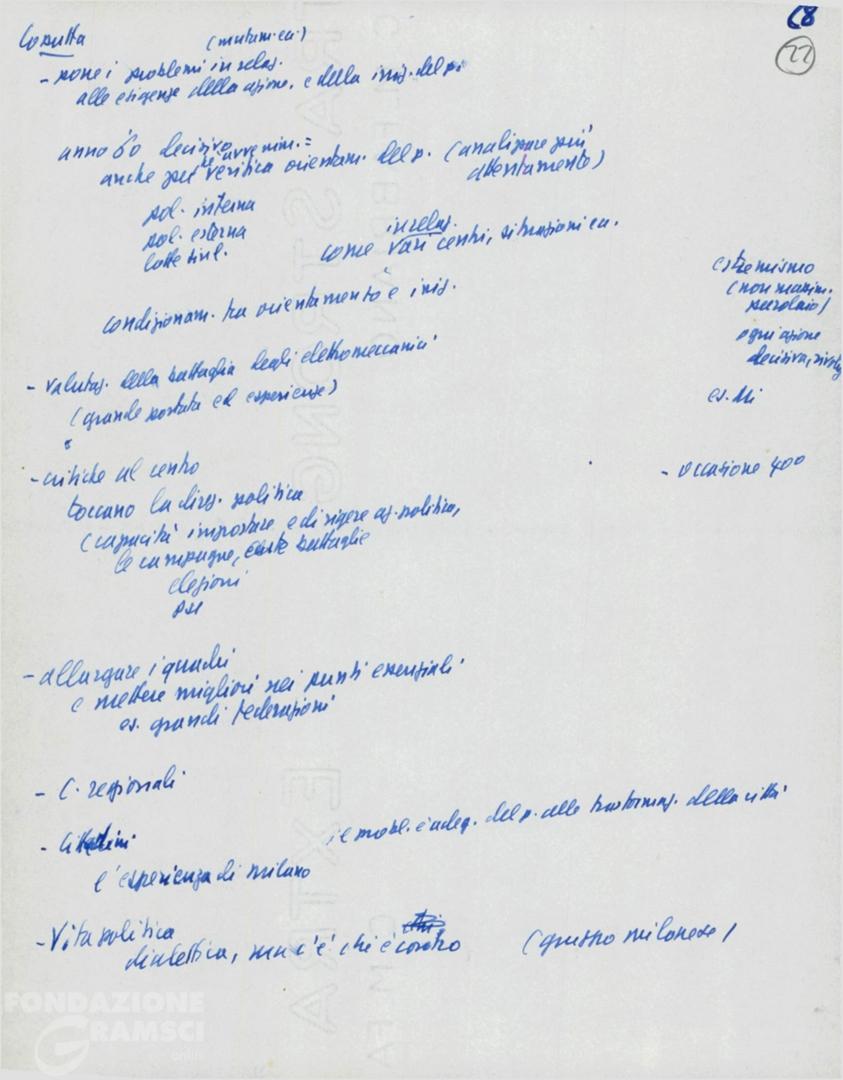 68
22
Cossutta (mutam. ecc.)
- pone i problemi in relaz.
alle esigenze della azione, e della iniz. del p.
anno 60 decisivo avvenim. =
anche per verifica orientam. del p. (analizzare più
attentamente)
pol. interna
pol. esterna
lotte riv.
in relaz.
come vari centri, situazioni ecc.
condizionam. tra orientamento e iniz.
estremismo
(non massim.
parolaio)
ogni azione
decisiva, rivoluz
es. Mi
- valutaz. della battaglia degli elettromeccanici
(grande portata ed esperienze)
- critiche al centro
- occasione 400
toccano la direz. politica
(capacità impostare e dirigere az. politica,
le campagne, battaglie
elezioni
psi
- allargare i quadri
e mettere migliori nei punti essenziali
es. grandi federazioni
- C. regionali
- Cittadini il probl. è adeg. del p. alle trasformaz. della città
l'esperienza di Milano
- Vita politica
dialettica, ma c'è chi è contro (gruppo milanese)
FONDAZIONE
GRAMSCI
online